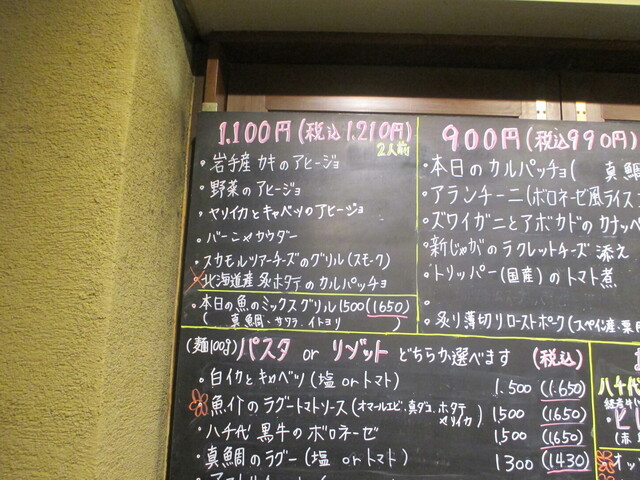 1.100円(税込1.210円)
2人前
・岩手産 カキのアヒージョ
・野菜のアヒージョ
・ヤリイカとキャベツのアヒージョ
・バーニャカウダー
・スカモルツァーチーズのグリル(スモーク)
・北海道産 炙ホタテのカルパッチョ
・本日の魚のミックスグリル1500(1650)
(真鯛、サワラ、イトヨリ)
900円(税込990円)
・本日のカルパッチョ( 真鯛
・アランチーニ(ボロネーゼ風ライス
・ズワイガニとアボカドのカナッペ
・新じゃがのラクレットチーズ 添え
・トリッパー(国産)のトマト煮
・
・炙り薄切りローストポーク(スペイン産・栗
(麺100g)パスタ or リゾット どちらか選べます (税込)
・白イカとキャベツ(塩 or トマト) 1.500 (1.650)
・魚介のラグートマトソース(オマールエビ、真ダコ、ホタテ ヤリイカ) 1,500 (1.650)
・ハチ代 黒牛のボロネーゼ 1,500 (1650)
・真鯛のラグー(塩 or トマト) 1300 (1430)
ハチ代
・ヒレ
(赤
・オッ